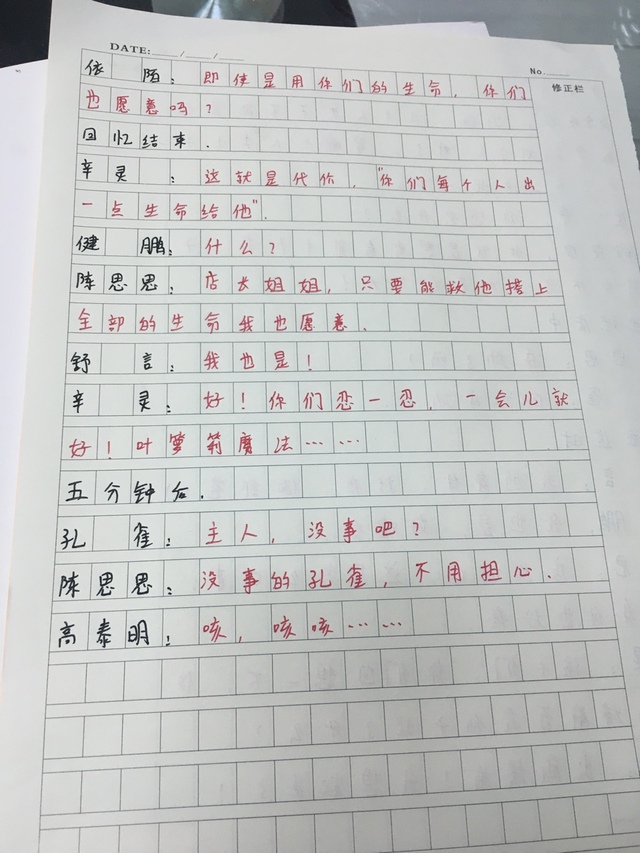 DATE:____/____/____
No.____
修正栏
依陌：即使是用你们的生命，你们
也愿意吗？
回忆结束．
辛灵：这就是代价，“你们每个人出
一点生命给他”．
健鹏：什么？
陈思思：店长姐姐，只要能救他搭上
全部的生命我也愿意．
舒言：我也是！
辛灵：好！你们忍一忍，一会儿就
好！叶萝莉魔法……
五分钟后．
孔雀：主人，没事吧？
陈思思：没事的孔雀，不用担心．
高泰明：咳，咳咳……